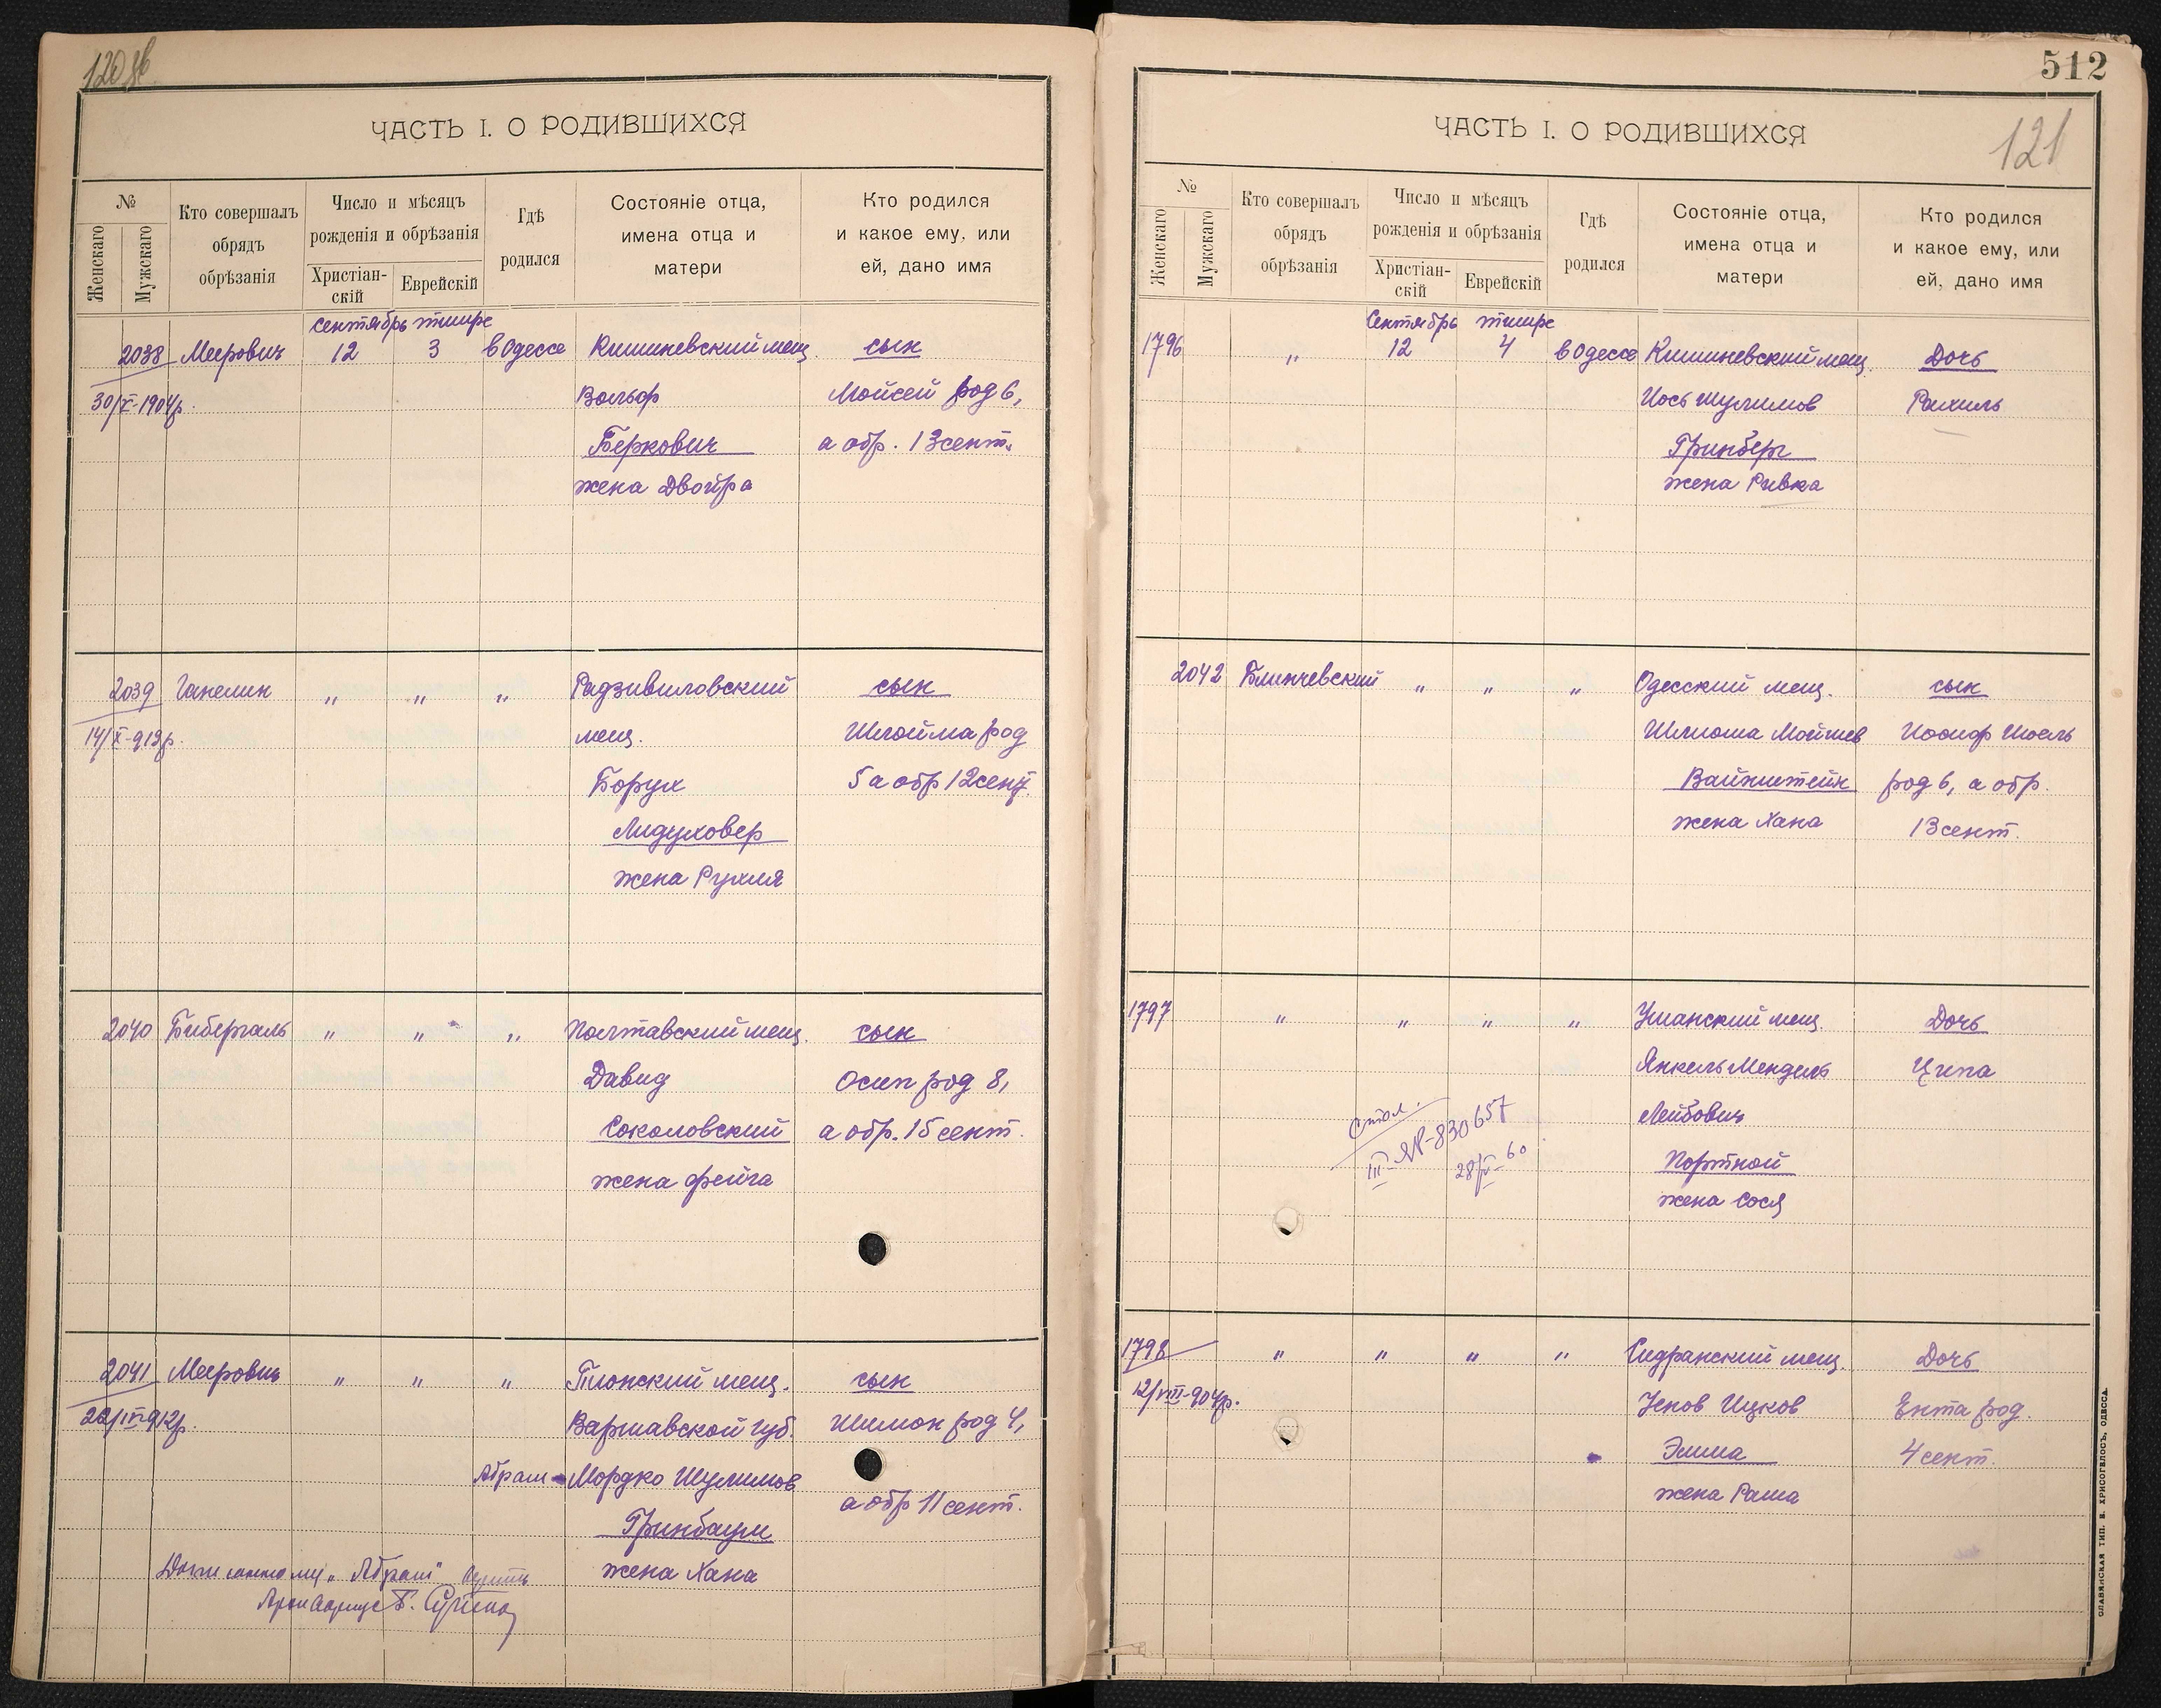 120 об
ЧАСТЬ I. О РОДИВШИХСЯ
№
Женскаго
Мужскаго
Кто совершалъ
обрядъ
обрѣзанія
Число и мѣсяцъ
рожденія и обрѣзанія
Христіан-
скій
Еврейскій
Гдѣ
родился
Состояніе отца,
имена отца и
матери
Кто родился
и какое ему, или
ей, дано имя
сентябрь тишре
2038 Меерович 12 3 в Одессе Кишиневский мещ. сын
30/X-1904р. Вольф Мойсей род 6,
Беркович а обр. 13 сент.
жена Двойра
2039 Ганелин " " " Радзивиловский сын
14/X-913р. мещ. Шлойма род
Борух 5 а обр 12 сент.
Лидуховер
жена Рухля
2040 Бибергаль " " " Полтавский мещ. сын
Давид Осип род 8,
Соколовский а обр. 15 сент.
жена Фейга
2041 Меерович " " " Плонский мещ. сын
22/IV-912р. Варшавской губ. Шимон род 4,
Абрам-Мордко Шулимов
а обр 11 сент.
Гринбаум
жена Хана
"Абрам"
512
121
ЧАСТЬ I. О РОДИВШИХСЯ
№
Женскаго
Мужскаго
Кто совершалъ
обрядъ
обрѣзанія
Число и мѣсяцъ
рожденія и обрѣзанія
Христіан-
скій
Еврейскій
Гдѣ
родился
Состояніе отца,
имена отца и
матери
Кто родился
и какое ему, или
ей, дано имя
Сентябрь тишре
1796 " 12 4 в Одессе Кишиневский мещ. Дочь
Иось Шулимов Рахиль
Гринберг
жена Ривка
2042 Блинчевский " " " Одесский мещ. сын
Шлиома Мойшев Иосиф Иоель
Вайнштейн род 6, а обр.
жена Хана 13 сент.
1797 " " " " Уманский мещ. Дочь
Янкель Мендель Ципа
Лейбович
Портной
жена Сося
III-ЯР-830657
28/V-60
1798 " " " " Сидранский мещ. Дочь
12/VIII-904р. Усков Ицков Ента род.
Эмма 4 сент.
жена Раша
СЛАВЯНСКАЯ ТИП. Е. ХРИСОГЕЛОСЪ, ОДЕССА.